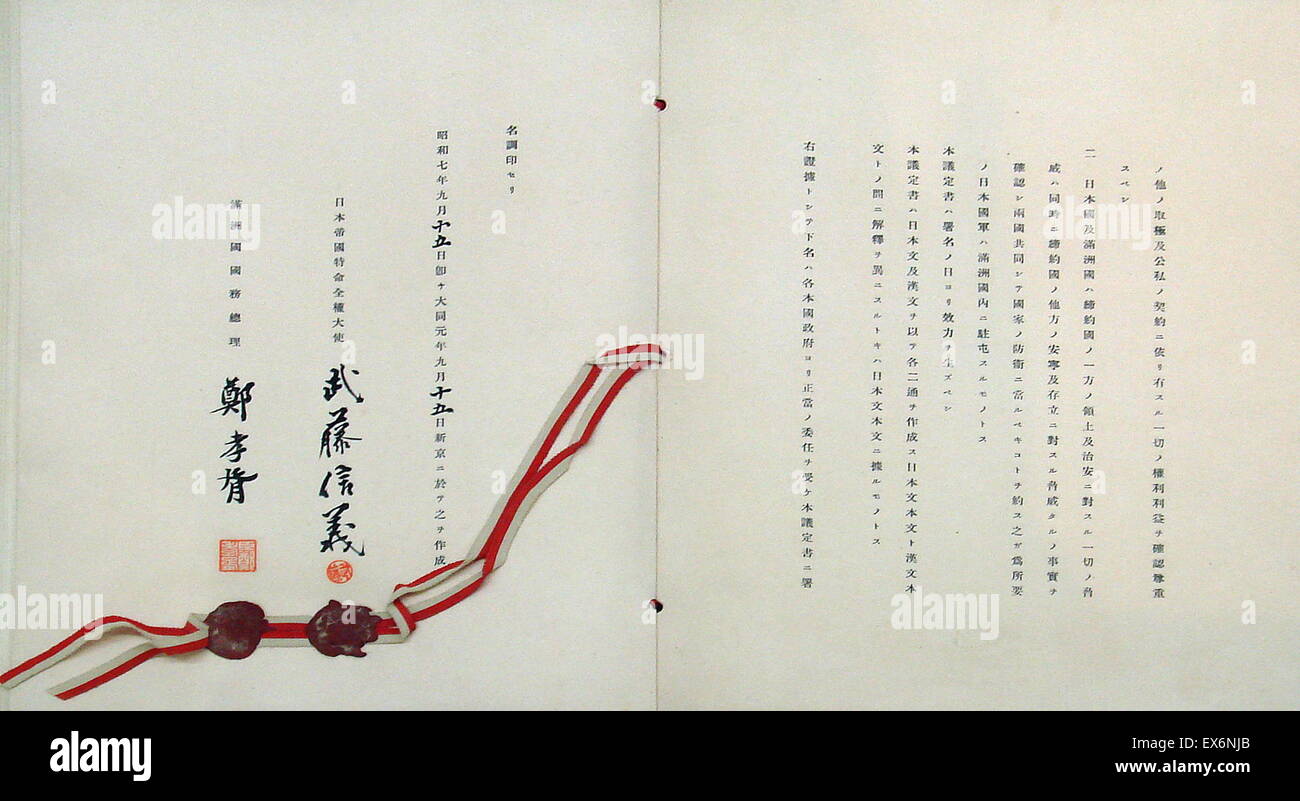 ノ他ノ取極及公私ノ契約ニ依リ有スル一切ノ權利利益ヲ確認尊重
スベシ
二 日本國及滿洲國ハ締約國ノ一方ノ領土及治安ニ對スル一切ノ脅
威ハ同時ニ締約國ノ他方ノ安寧及存立ニ對スル脅威タルノ事實ヲ
確認シ兩國共同シテ國家ノ防衞ニ當ルベキコトヲ約ス之ガ爲所要
ノ日本國軍ハ滿洲國內ニ駐屯スルモノトス
本議定書ハ署名ノ日ヨリ效力ヲ生ズベシ
本議定書ハ日本文及漢文ヲ以テ各二通ヲ作成ス日本文本文ト漢文本
文トノ間ニ解釋ヲ異ニスルトキハ日本文本文ニ據ルモノトス
右證據トシテ下名ハ各本國政府ヨリ正當ノ委任ヲ受ケ本議定書ニ署
名調印セリ
昭和七年九月十五日卽チ大同元年九月十五日新京ニ於テ之ヲ作成
日本帝國特命全權大使 武藤信義
滿洲國國務總理 鄭孝胥
a alamy stock photo
alamy
alamy
a
a
a
a
alamy
Image ID: EX6NJB
www.alamy.com